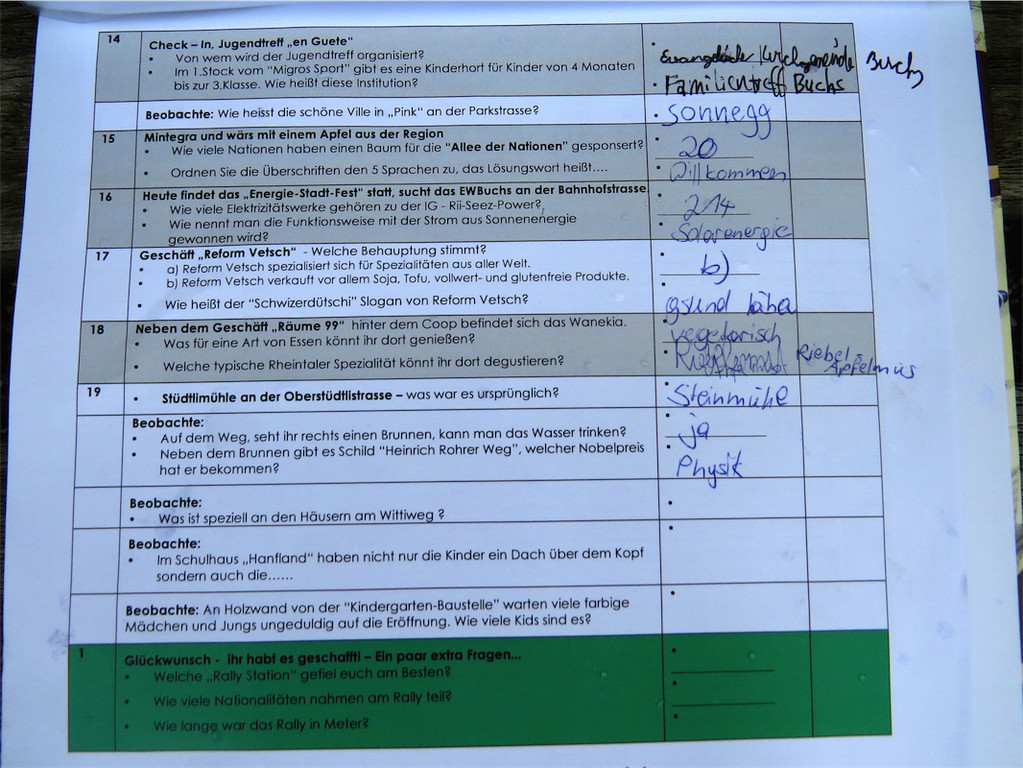 14
Check – In, Jugendtreff „en Guete"
• Von wem wird der Jugendtreff organisiert?
• Kirchgemeinde Buchs
• Im 1.Stock vom "Migros Sport" gibt es eine Kinderhort für Kinder von 4 Monaten
bis zur 3.Klasse. Wie heißt diese Institution?
• Familientreff Buchs
Beobachte: Wie heisst die schöne Ville in „Pink" an der Parkstrasse?
• Sonnegg
15
Mintegra und wärs mit einem Apfel aus der Region
• Wie viele Nationen haben einen Baum für die "Allee der Nationen" gesponsert?
• 20
• Ordnen Sie die Überschriften den 5 Sprachen zu, das Lösungswort heißt….
• Willkommen
16
Heute findet das „Energie-Stadt-Fest" statt, sucht das EWBuchs an der Bahnhofstrasse.
• Wie viele Elektrizitätswerke gehören zu der IG - Rii-Seez-Power?
• 214
• Wie nennt man die Funktionsweise mit der Strom aus Sonnenenergie
gewonnen wird?
• Solarenergie
17
Geschäft „Reform Vetsch" - Welche Behauptung stimmt?
• a) Reform Vetsch spezialisiert sich für Spezialitäten aus aller Welt.
• b) Reform Vetsch verkauft vor allem Soja, Tofu, vollwert- und glutenfreie Produkte.
• b)
• Wie heißt der "Schwizerdütschi" Slogan von Reform Vetsch?
gsund läbe
18
Neben dem Geschäft „Räume 99" hinter dem Coop befindet sich das Wanekia.
• Was für eine Art von Essen könnt ihr dort genießen?
• vegetarisch
• Welche typische Rheintaler Spezialität könnt ihr dort degustieren?
• Riebel -
Apfelmus
19
• Stüdtlimühle an der Oberstüdtlistrasse – was war es ursprünglich?
• Steinmühle
Beobachte:
• Auf dem Weg, seht ihr rechts einen Brunnen, kann man das Wasser trinken?
• ja
• Neben dem Brunnen gibt es Schild "Heinrich Rohrer Weg", welcher Nobelpreis
hat er bekommen?
• Physik
Beobachte:
• Was ist speziell an den Häusern am Wittiweg ?
Beobachte:
• Im Schulhaus „Hanfland" haben nicht nur die Kinder ein Dach über dem Kopf
sondern auch die……
Beobachte: An Holzwand von der "Kindergarten-Baustelle" warten viele farbige
Mädchen und Jungs ungeduldig auf die Eröffnung. Wie viele Kids sind es?
1
Glückwunsch - ihr habt es geschafft! – Ein paar extra Fragen...
• Welche „Rally Station" gefiel euch am Besten?
• Wie viele Nationalitäten nahmen am Rally teil?
• Wie lange war das Rally in Meter?